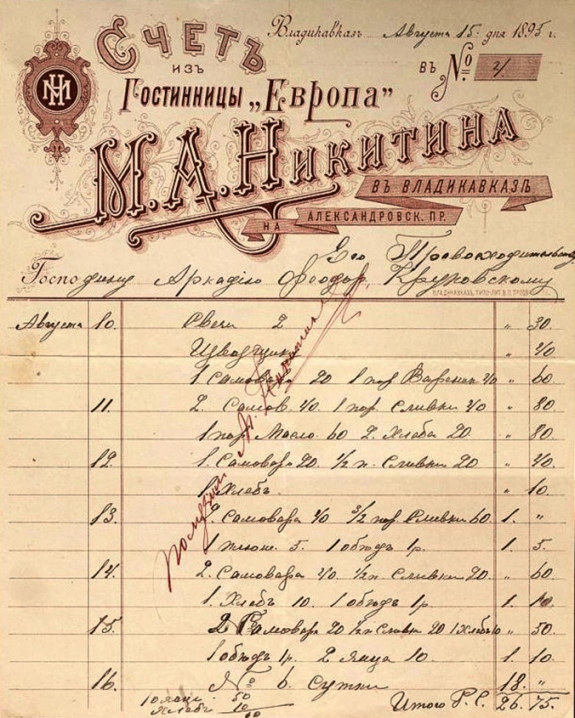 Счетъ
Владикавказъ Августа 15. дня 1895 г.
изъ
въ № 2/
НМ
Гостинницы „Европа“
М.А. Никитина
въ Владикавказѣ
на Александровск. пр.
Его Превосходительству
Господину Аркадію Феодор. Круковскому
Августа 10. Свечи 2 „ 30
Извощику „ 40
1 Самовар 20 1 пор. Варенья 40 „ 60
11. 2. Самов. 40. 1 пор. Сливки 40 „ 80
1 пор. Масло 60 2. Хлеба 20 „ 80.
12. 1. Самовара 20. 1/2 п. Сливки 20 „ 40.
1 Хлебъ „ 10.
13. 2. Самовара 40 3/2 пор. Сливки 60. 1. „
1 5. 1 обедъ 1р. 1. 5.
14. 2. Самовара 40. 1/2 п. Сливки 20. „ 60
1. Хлебъ 10. 1 обедъ 1р. 1. 10.
15. Самовара 20 1/2 п. Сливки 20 1 Хлебъ 10 „ 50
1 обедъ 1р. 2 Яйца 10. 1. 10
16. № 6. Сутки 18. „
10 яицъ 50
Хлебъ 10
60
Итого Р.С. 26. 75.